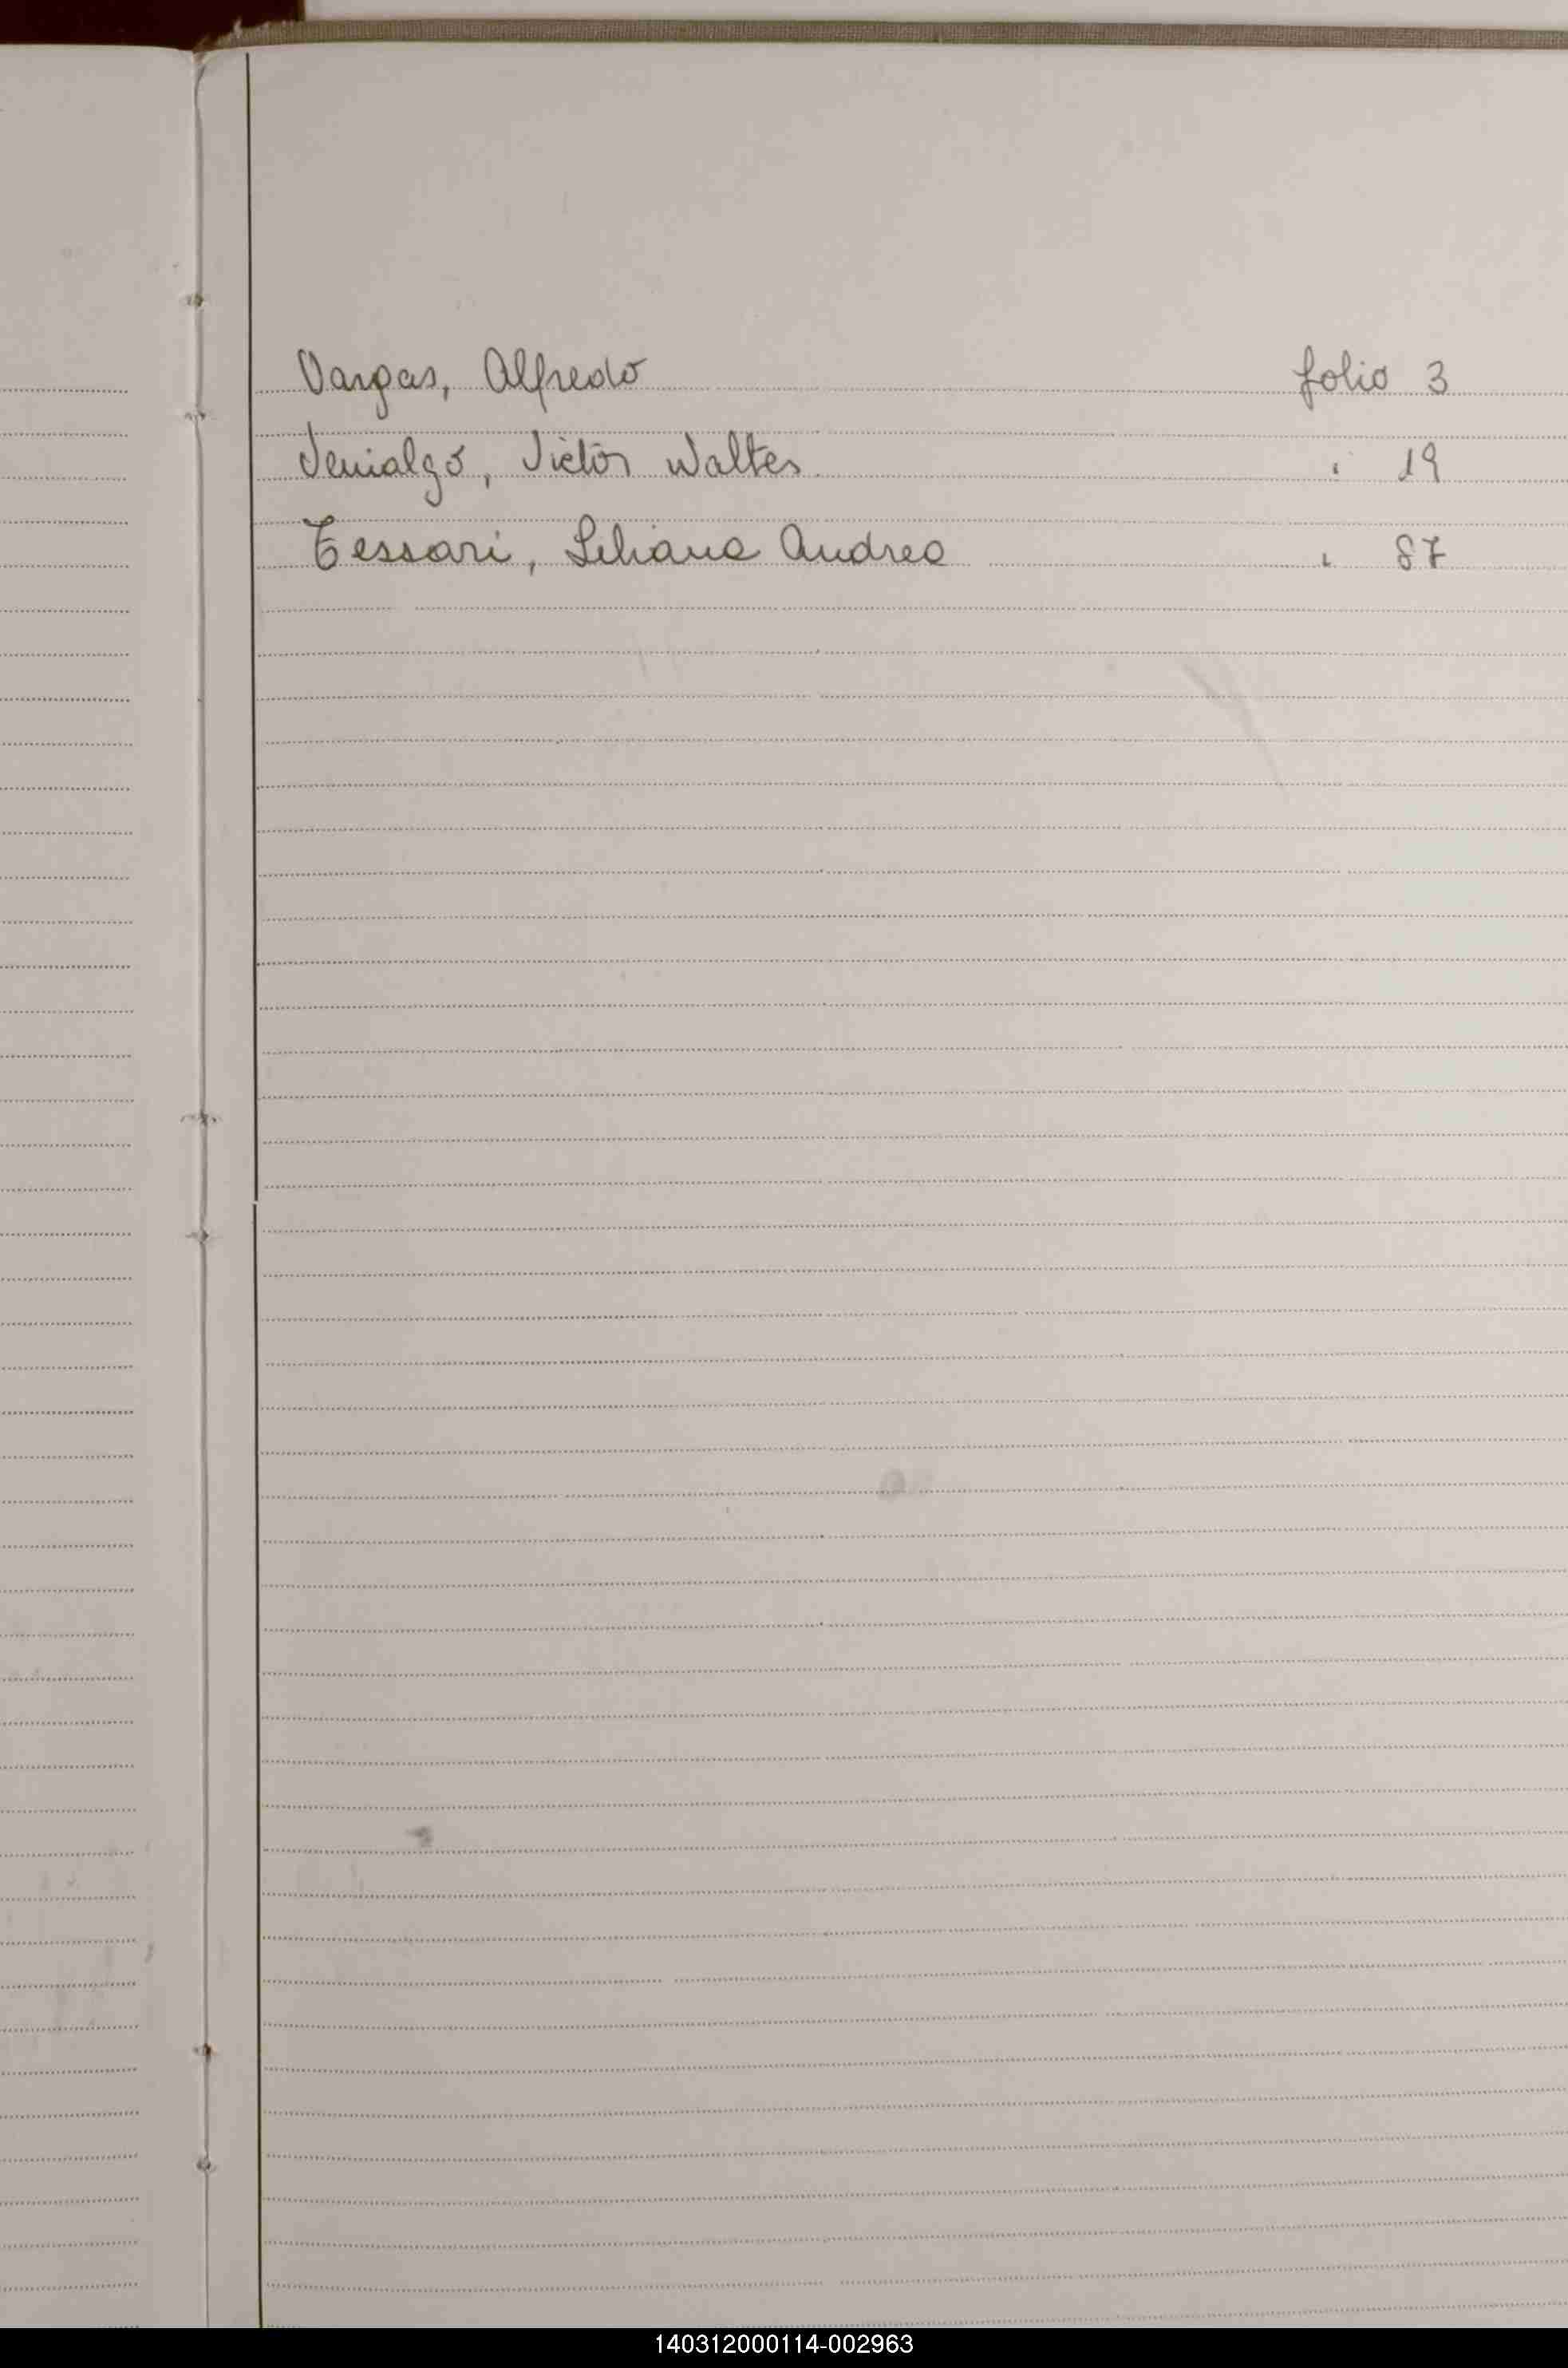 Vargas, Alfredo folio 3
Venialgo, Victor Walter " 19
Tessari, Liliana Andrea " 87
140312000114-002963